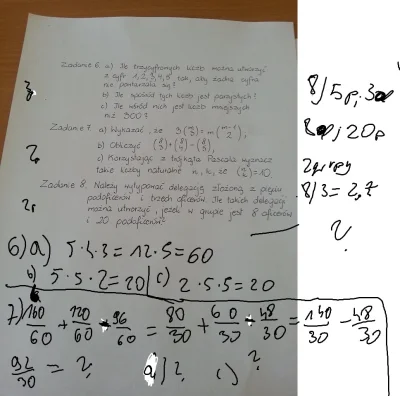 Zadanie 6. a) Ile trzycyfrowych liczb można utworzyć
z cyfr 1,2,3,4,5 tak, aby żadna cyfra
nie powtarzała się?
b) Ile spośród tych liczb jest parzystych?
c) Ile wśród nich jest liczb mniejszych
niż 300?
Zadanie 7. a) Wykazać, że
b) Obliczyć
c) Korzystając z trójkąta Pascala wyznacz
takie liczby naturalne n, k, że =10.
Zadanie 8. Należy wytypować delegację złożoną z pięciu
podoficerów i trzech oficerów. Ile takich delegacji
można utworzyć, jeżeli w grupie jest 8 oficerów
i 20 podoficerów?
8/5p, 3o
8o, 20p
2 grupy
8/3 = 2,7
?
6) a) 5·4·3=12·5=60
b) 5·5·2=20 c) 2·5·5=20
7) 160/60 + 120/60 - 96/60 = 80/30 + 60/30 - 48/30 = 140/30 - 48/30
92/30 = ? a) ? c) ?